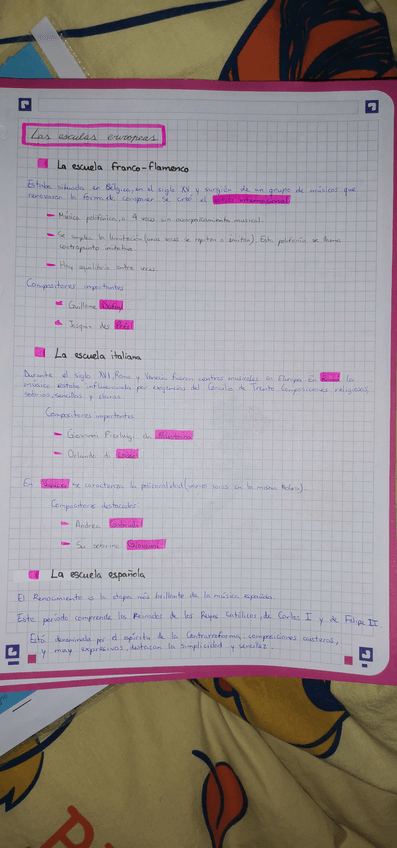 Las esculas europeas
La escuela franco-flamenco
Estaba situada en Bélgica, en el siglo XV y surgión de un grupo de músicos que
renovaron la forma de componer. Se creó el estilo internacional.
- Música polifónica, a 4 voces sin acompañamiento musical.
- Se emplea la imitación (unas voces se repiten o imitan). Esta polifonía se llama
contrapunto imitativo.
- Hay equilibrio entre voces.
Compositores importantes
- Guillaume Dufay
- Josquin des Prez
La escuela italiana
Durante el siglo XVI, Roma y Venecia fueron centros musicales en Europa. En Roma la
música estaba influenciada por exigencias del Concilio de Trento. Composiciones religiosas,
sobrias, sencillas y claras.
Compositores importantes
- Giovanni Pierluigi da Palestrina
- Orlando di Lasso
En Venecia se caracteriza la policoralidad (varios coros en la misma
Compositores destacados
- Andrea Gabrieli
- Su sobrino Giovanni
La escuela española
El Renacimiento es la etapa más brillante de la música española.
Este período comprende los Reinados de los Reyes Católicos, de Carlos I y de Felipe II.
Está denominada por el espíritu de la Contrarreforma, composiciones austeras,
y muy expresivas, destacan la simplicidad y sencillez.